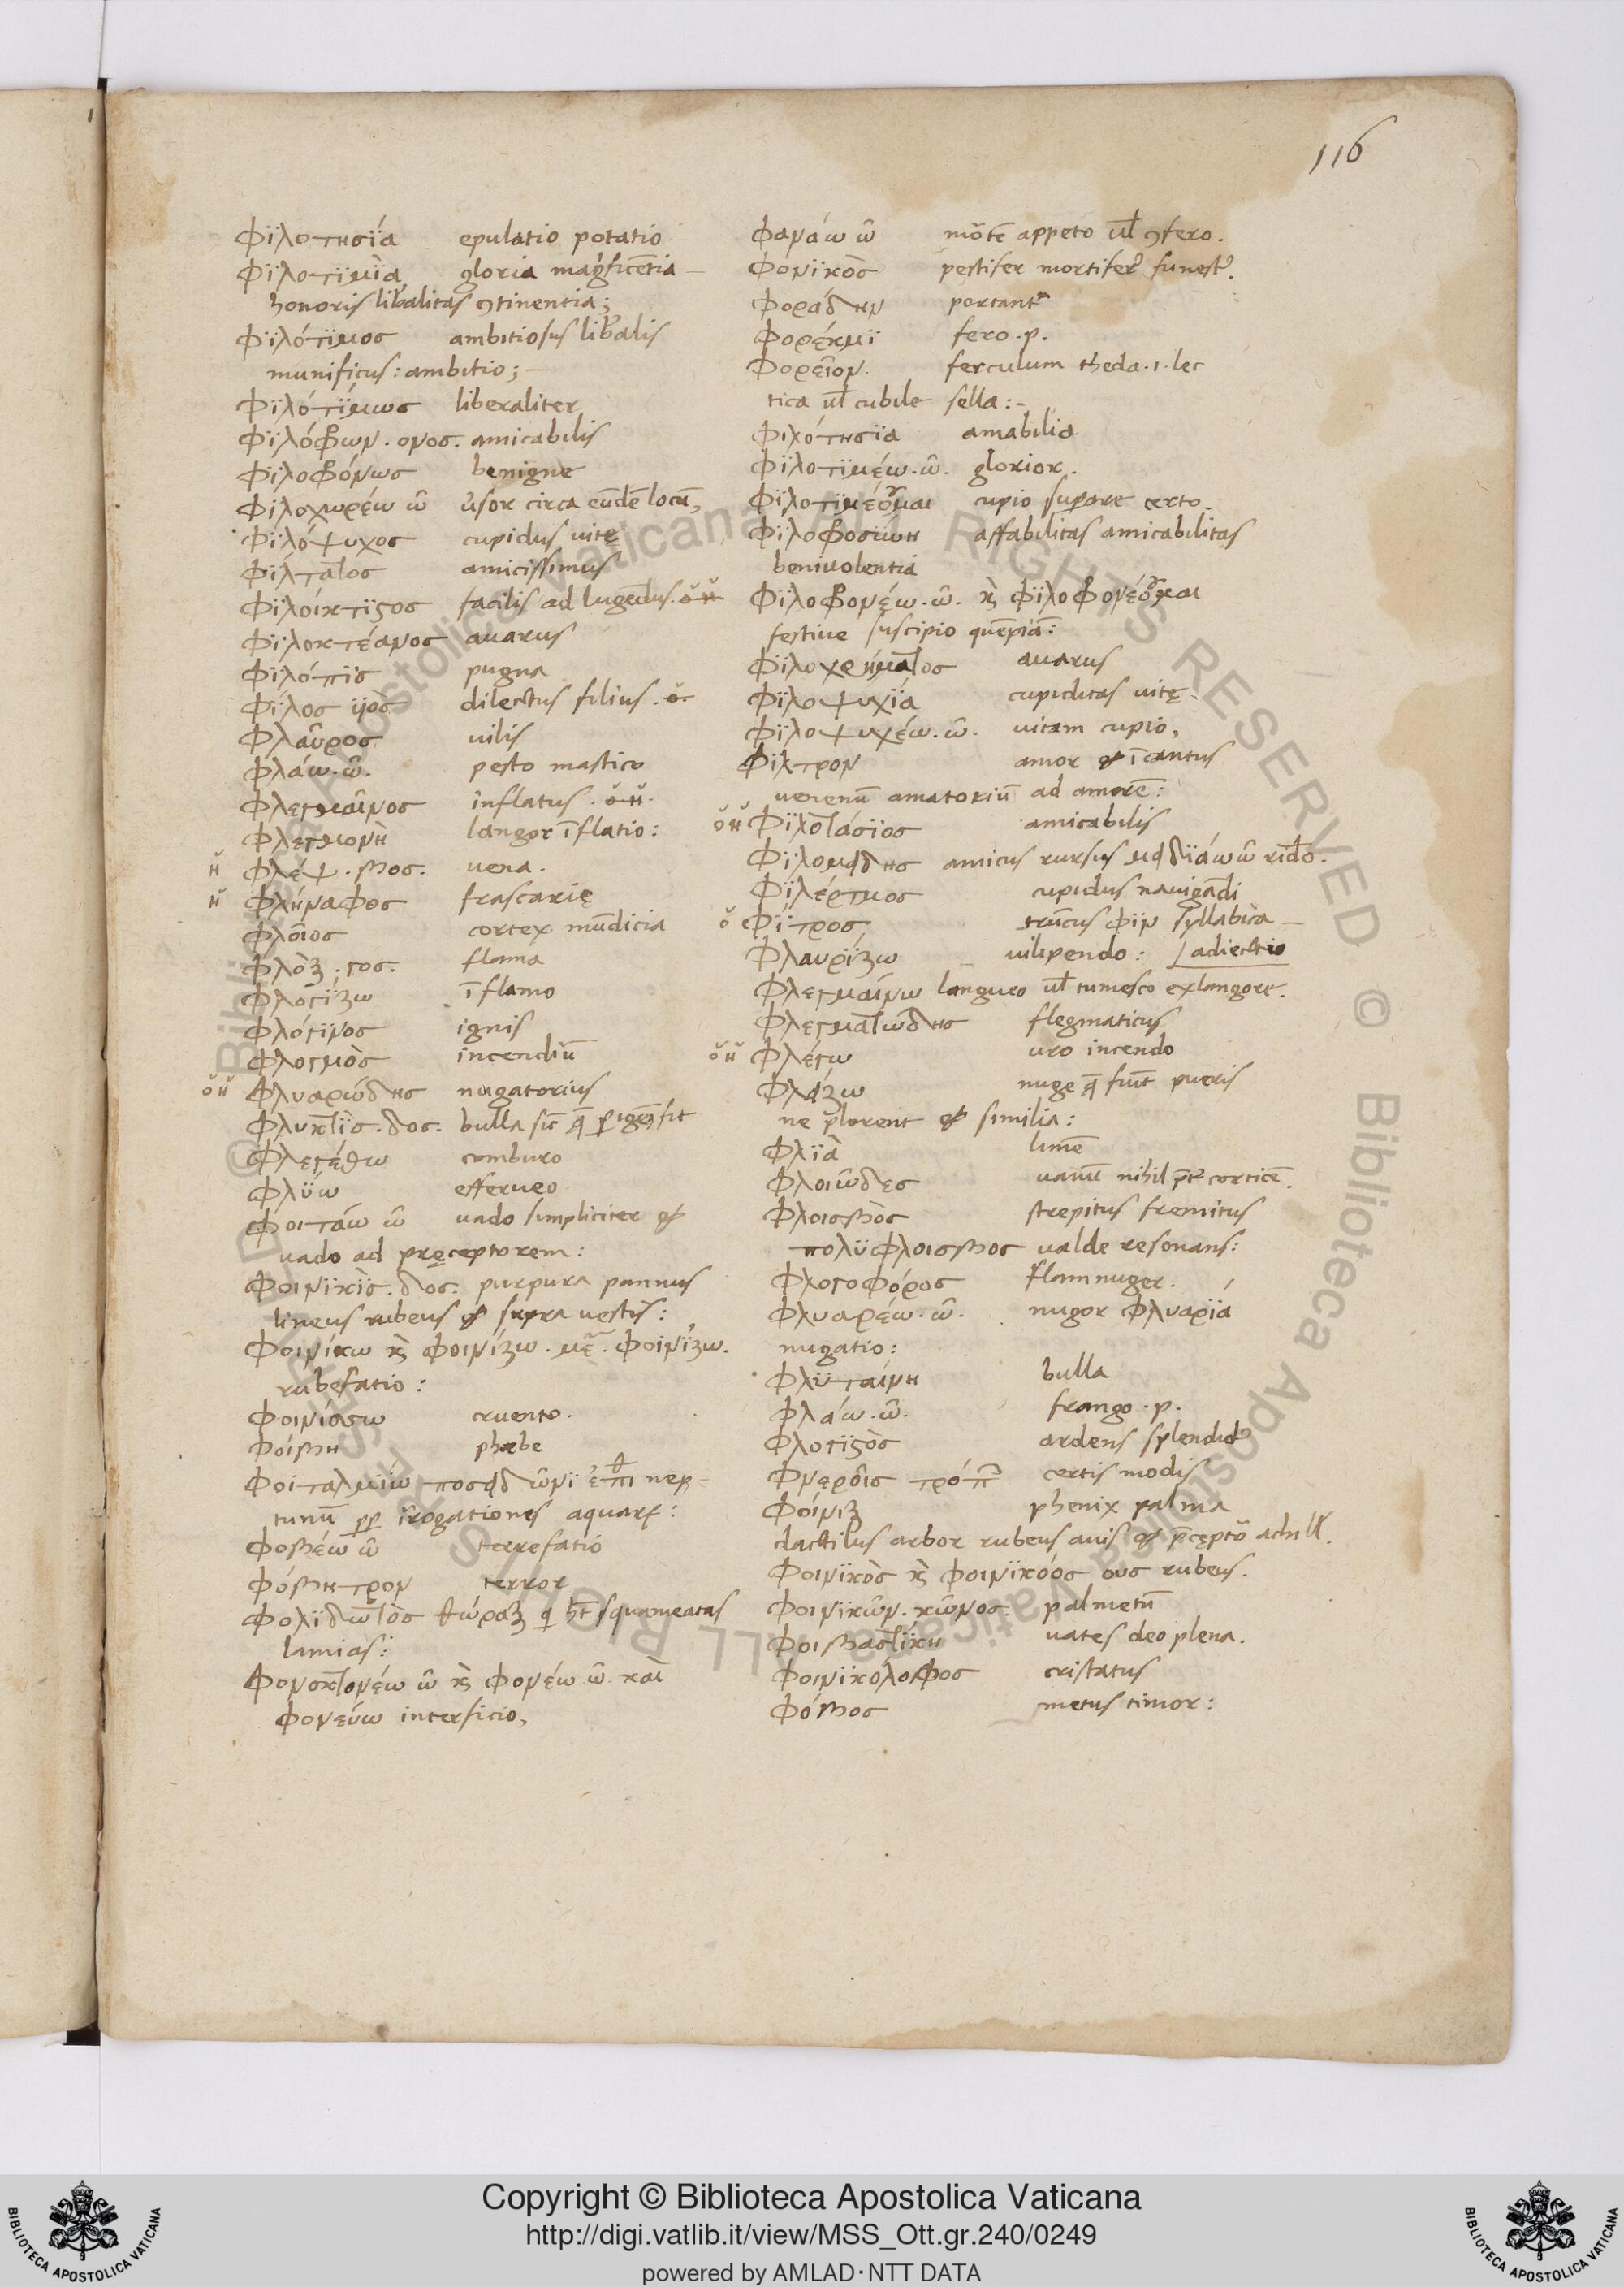 116
φιλοτησία epulatio potatio
φιλοτιμία gloria magficētia
honoris libalitas 9tinentia;
φιλότιμος ambitiosus libalis
munificus: ambitio;
φιλότίμως liberaliter
φιλόφρων . ονος. amicabilis
φιλοφρόνως benigne
φιλοχωρέω ῶ ūsor circa eūdē locū,
φιλόψυχος cupidus uitę
φίλτατος amicissimus
φιλοίκτιστος facilis ad lugēdus. ὅ ἡ
φιλοκτέανος auarus
φιλόπις pugna
φίλος ὑὸς dilectus filius. ὅ
φλαῦρος uilis
φλάω.ῶ. pesto mastico
φλεγμαῖνος inflatus. ὅ ἡ.
φλεγμονὴ langor īflatio:
ἡ φλέψ.βος. uena.
ἡ φλήναφος frascarię
φλοῖος cortex mūdicia
φλὸξ.γος. flama
φλογίζω īflamo
φλόγινος ignis
φλογμὸς incendiū
ὅ ἡ φλυαρώδης nugatorius
φλυκτὶς.δος. bulla
φλεγέθω comburo
φλύω efferueo
φοιτάω ῶ uado simpliciter et
uado ad pręceptorem:
φοινικὶς.δος. purpura pannus
lineus rubeus et supra uestis:
φοινίκω κὶ φοινίζω. φοινίζω.
rubefatio:
φοινίσσω cruento.
φοίβη phœbe
φοιταλμίω ποσειδῶνι nep
tunū irogationes aquarȩ:
φοβέω ῶ terrefatio
φόβητρον terror
φολιδωτὸς θώραξ squameatas
lamias:
φονοκτονέω ῶ κὶ φονέω ῶ καὶ
φονεύω interficio,
φανάω ῶ mōtē appeto ul 9fero.
φονικὸς pestifer mortifer funest.
φοράδην portant
φορέημι fero.p.
φορεῖον. ferculum theda.i.lec
tica ul cubile sella:-
φιλότησία amabilia
φιλοτιμέω.ῶ. glorior.
φιλοτιμέομαι cupio supare certo.
φιλοφροσύνη affabilitas amicabilitas
beniuolentia
φιλοφρονέω.ῶ. κὶ φιλοφρονέομαι
festiue suscipio quēpiā:
φιλοχρήματος auarus
φιλοψυχία cupiditas uitę.
φιλοψυχέω.ῶ. uitam cupio,
φίλτρον amor et īcantus
uenenū amatoriū ad amorē:
ὅ ἡ φιλοτάσιος amicabilis
φιλομειδης amicus rursus μειδιάω ῶ rido.
φιλέρτμος cupidus nauigādi
ὅ φίτρος trūcus φιν syllabica
φλαυρίζω uilipendo: adiectio
φλεγμαίνω languro ul tumesco exlangore.
φλεγματώδης flegmaticus
ὅ ἡ φλέγω uro incendo
φλάζω nuge q̄ fiūt pueris
ne plorent et similia:
φλιὰ limē
φλοιῶδες uanū nihil pt corticē.
φλοισβὸς strepitus fremitus
πολύφλοισβος ualde resonans:
φλογοφόρος flammiger.
φλυαρέω.ῶ. nugor φλυαρία
nugatio:
φλύταινη bulla
φλάω.ῶ. frango.p.
φλογιστὸς ardens splendid
φνεροῖς τρόπ certis modis
φοίνιξ phenix palma
dactilus arbor rubeus auis et pceptō achill.
φοινικὸς κὶ φοινικόος ους rubeus.
φοινικῶν.κῶνος. palmetū
φοιβαστίκη uates deo plena.
φοινικόλοφος cristatus
φόβος metus timor:
Copyright © Biblioteca Apostolica Vaticana
http://digi.vatlib.it/view/MSS_Ott.gr.240/0249
powered by AMLAD·NTT DATA